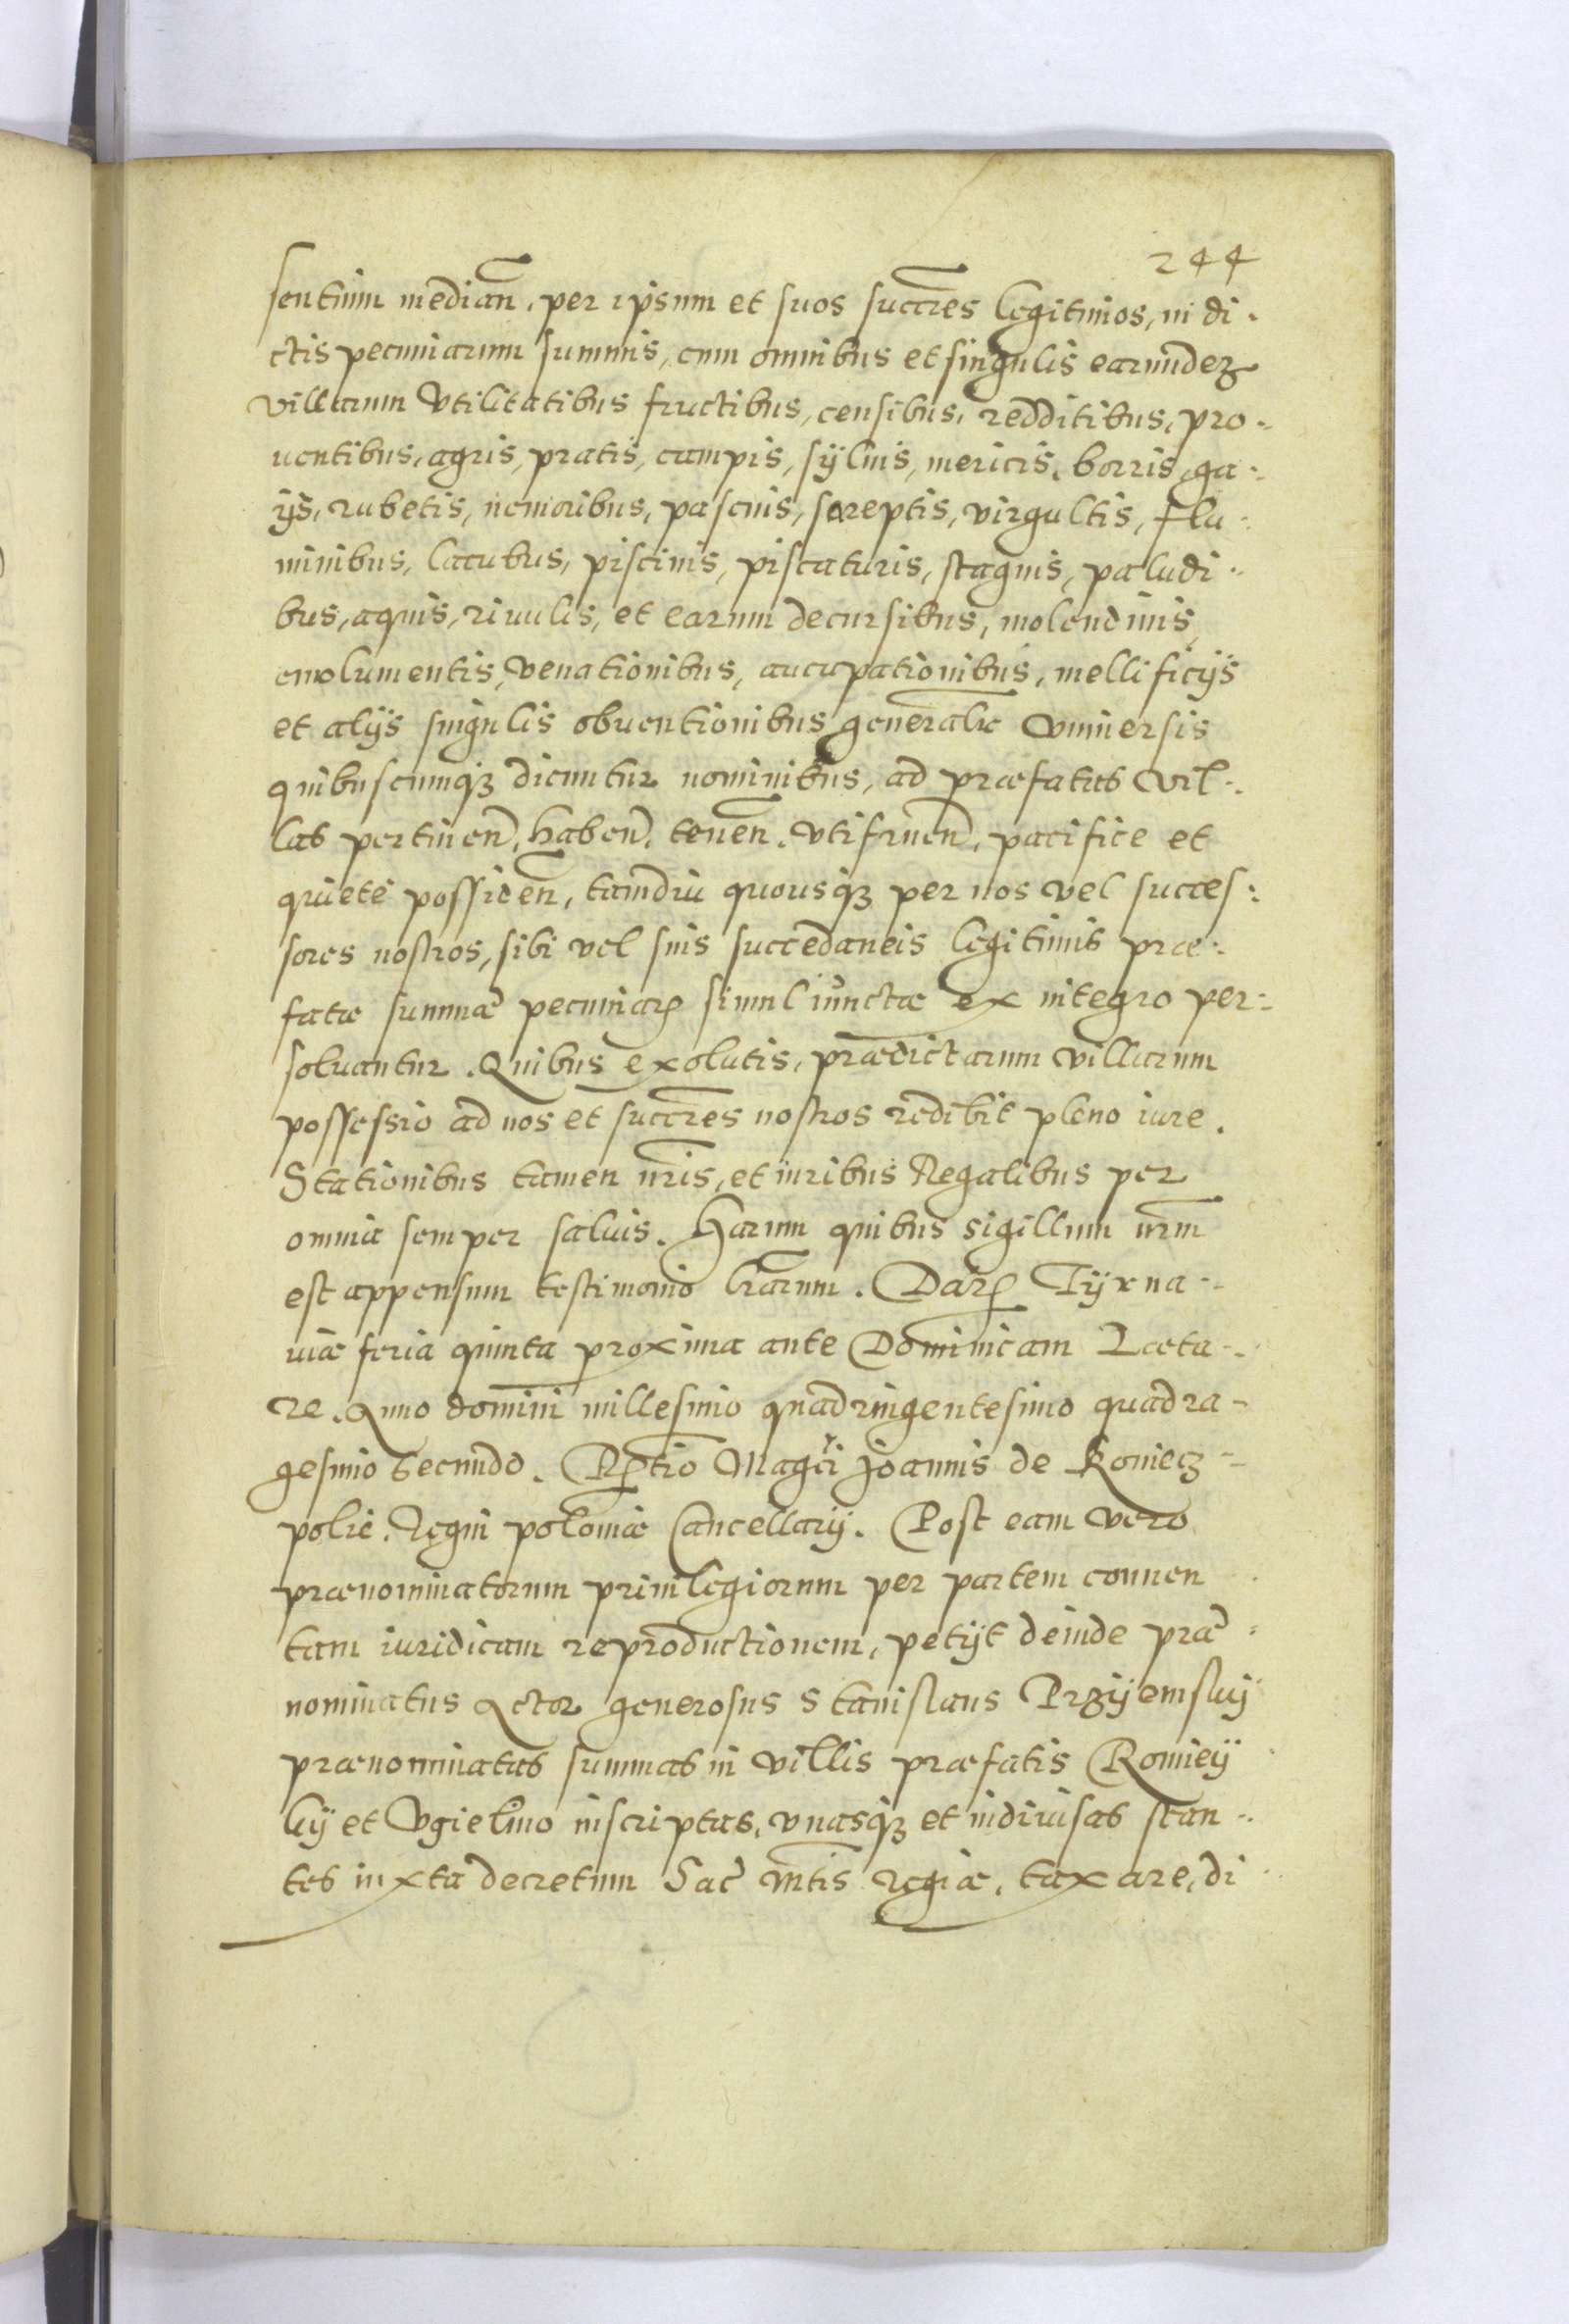 244
sentium median, per ipsum et suos succres legitimos, in di.
ctis pecuniarum summis, cum omnibus et singulis earundez
villarum Vtilitatibus fructibus, censibus, redditibus, pro-
uentibus, agris, pratis, campis, sÿluis, mericis, borris, ga-
ijs, rubetis, nemoribus, pascuis, sereptis, virgultis, flu-
minibus, lacubus, piscinis, piscaturis, stagnis, paludi-
bus, aquis, riuulis, et earum decursibus, molendinis,
emolumentis, venationibus, aucupationibus, mellificÿs
et alÿs singulis obuentionibus generalr vniuersis
quibuscunqz dicuntur nominibus, ad præfatas vil-
las pertinen, haben, tenen, vtifruen, pacifice et
quiete possiden, tamdiu quousqz per nos vel succes:
sores nostros, sibi vel suis succedaneis legitimis præ-
fatæ summæ pecuniarz simul iunctæ ex integro per-
soluantur. Quibus exolutis, prædictarum villarum
possessio ad nos et succres nostros redibit pleno iure.
Stationibus tamen nris, et iuribus Regalibus per
omnia semper saluis. Harum quibus sigillum nrm
est appensum testimonio lrarum. Datz Tÿrna-
uiæ feria quinta proxima ante Dominicam Læta-
re. Anno domini millesimo quadringentesimo quadra-
gesimo secundo. Rtio Magci Joannis de Koniecz-
polie. Regni poloniæ Cancellarij. Post eam vero
prænominatorum priuilegiorum per partem conuen
tam iuridicam reproductionem, petÿt deinde præ-
nominatus Actor generosus Stanislaus Przÿemskij
prænominatas summas in villis præfatis Romieÿ
kÿ et Vgielmo inscriptas, vnasqz et indiuisas stan-
tes iuxta decretum Sac mtis Regiæ, taxare, di